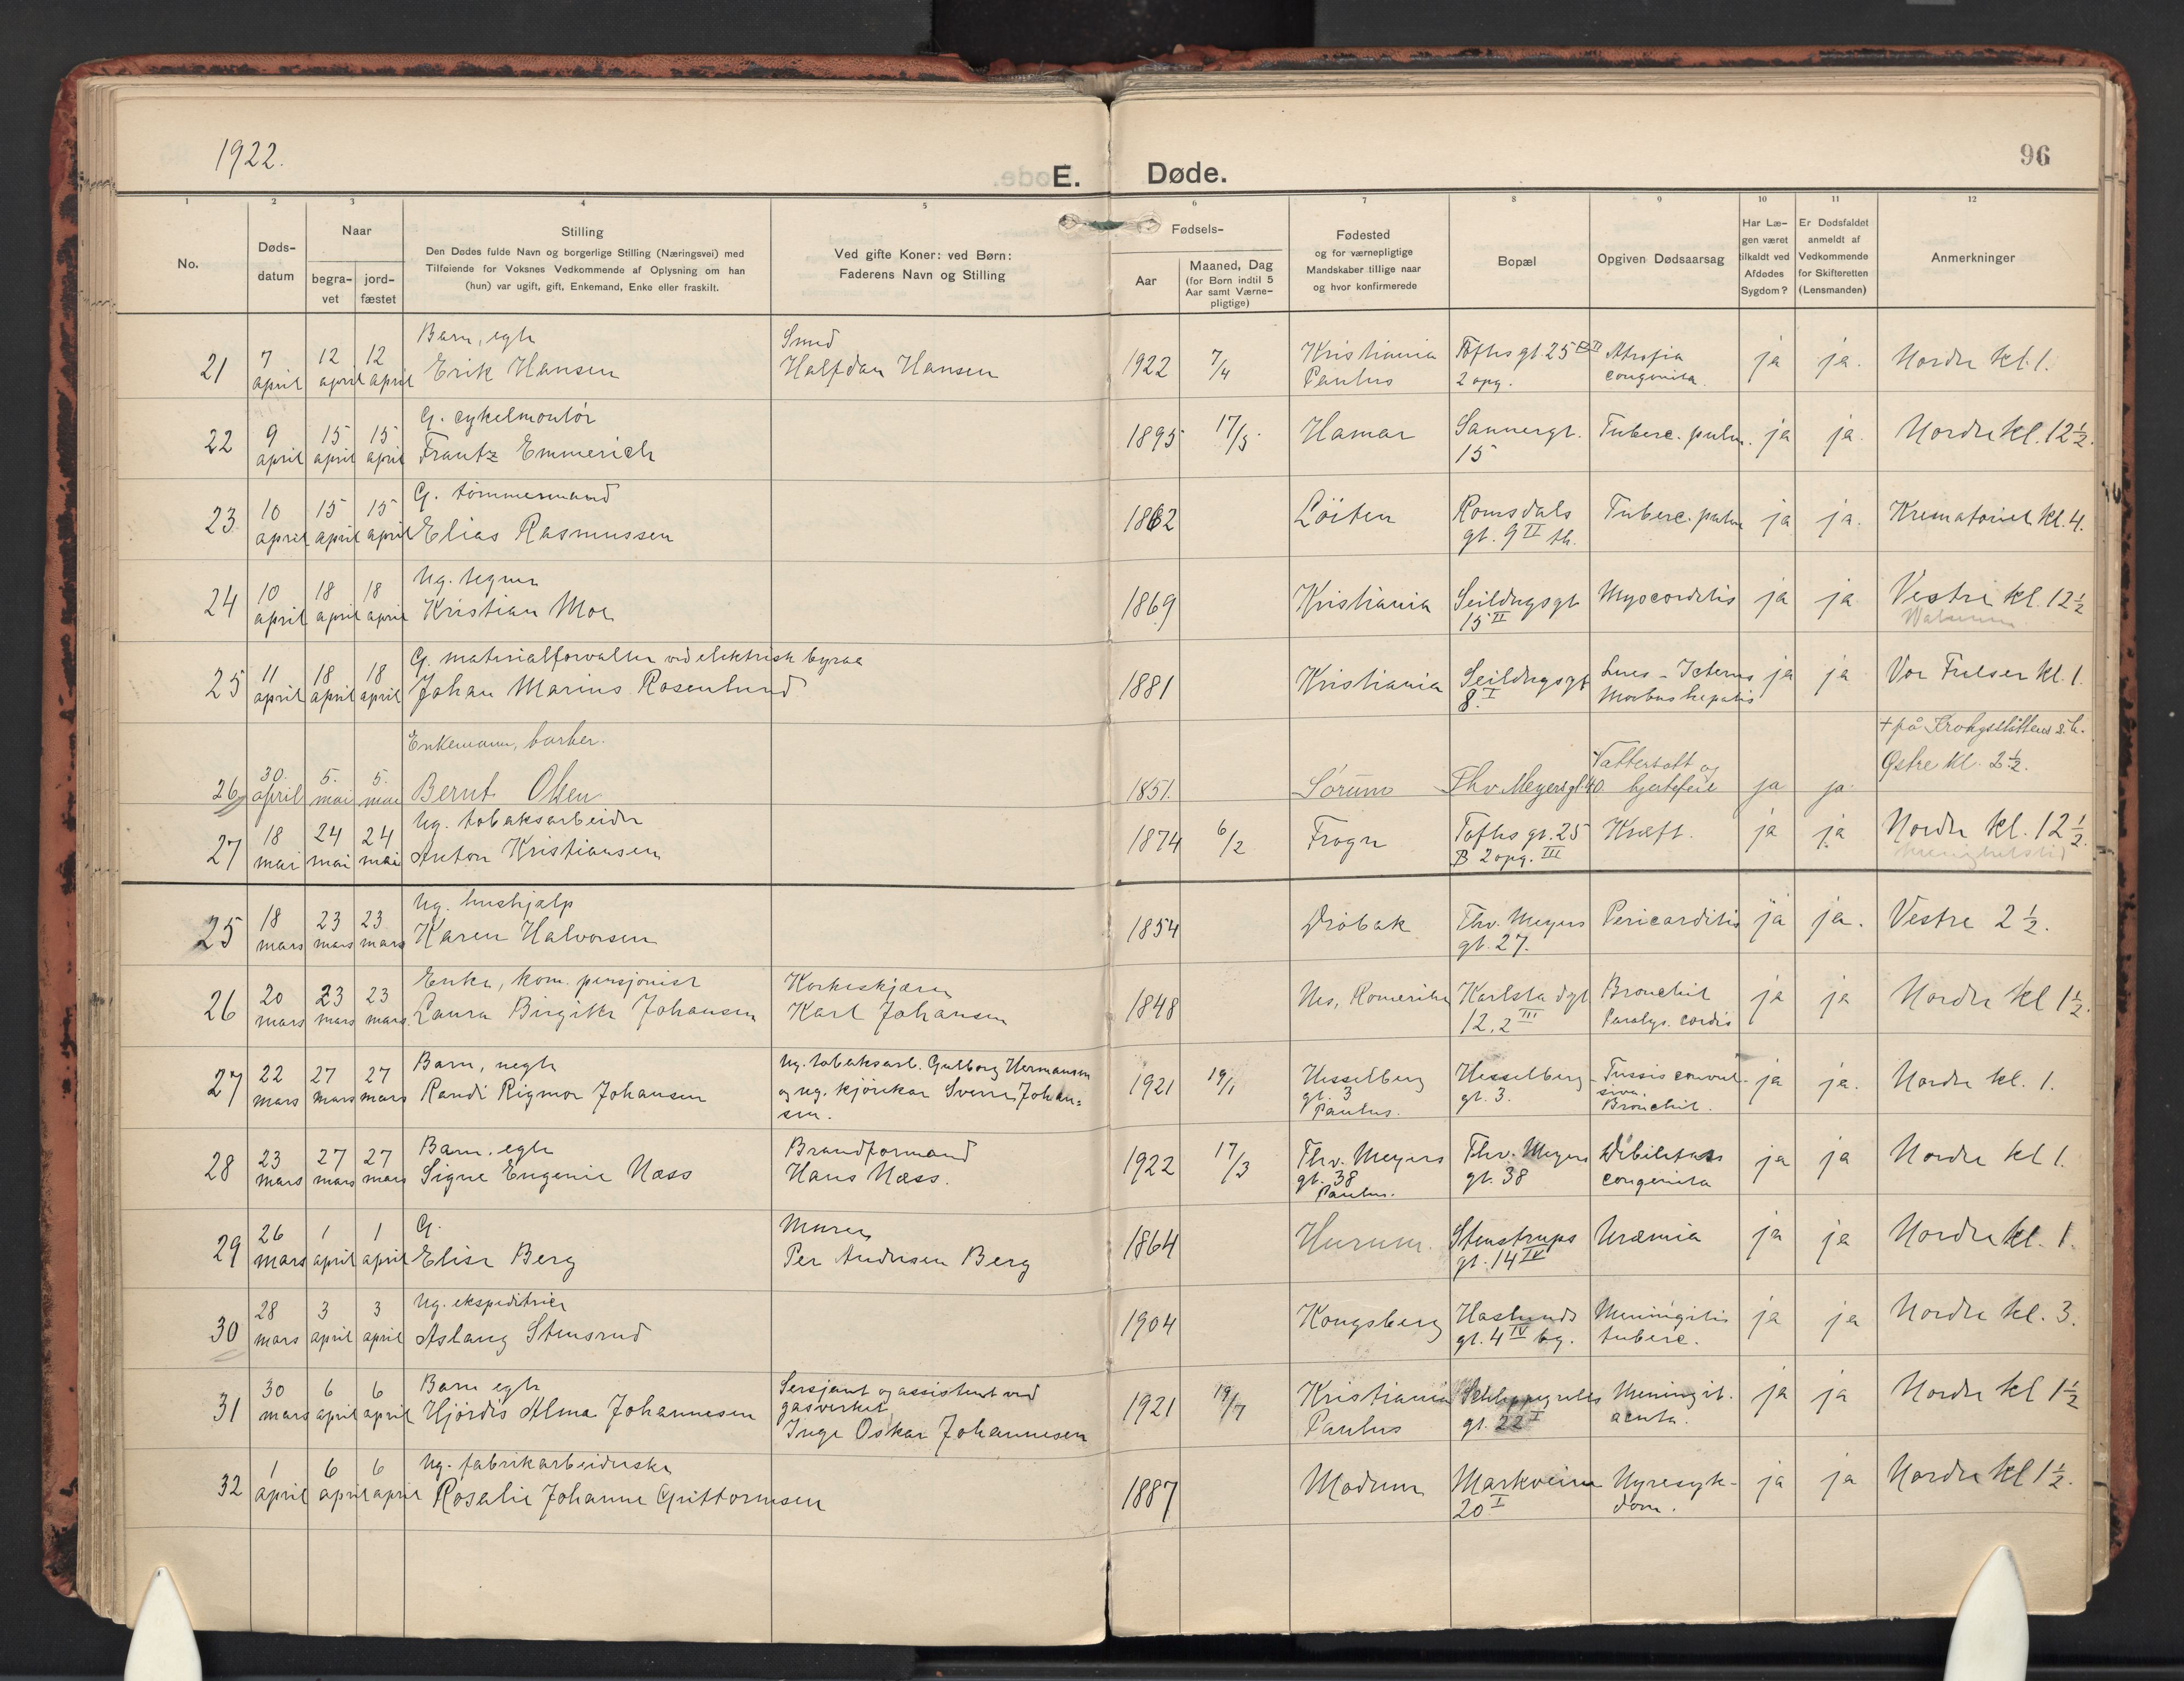 1922.
96
E. Døde.
1 2 3 4 5 6 7 8 9 10 11 12
No.
Døds-
datum
Naar
begra-
vet
jord-
fæstet
Stilling
Den Dødes fulde Navn og borgerlige Stilling (Næringsvei) med
Tilføiende for Voksnes Vedkommende af Oplysning om han
(hun) var ugift, gift, Enkemand, Enke eller fraskilt.
Ved gifte Koner: ved Børn:
Faderens Navn og Stilling
Fødsels-
Aar
Maaned, Dag
(for Børn indtil 5
Aar samt Værne-
pligtige)
Fødested
og for værnepligtige
Mandskaber tillige naar
og hvor konfirmerede
Bopæl
Opgiven Dødsaarsag
Har Læ-
gen været
tilkaldt ved
Afdødes
Sygdom?
Er Dødsfaldet
anmeldt af
Vedkommende
for Skifteretten
(Lensmanden)
Anmerkninger
Barn, egte Smed
21 7 12 12 Erik Hansen Halfdan Hansen 1922 7/4 Kristiania Toftes gt. 25 Atrofia ja ja. Nordre kl. 1.
april april april Paulus 2 opg. congenita.
G. cykelmontör
22 9 15 15 Frantz Emmerich 1895 17/5 Hamar Sannergt. Tuberc. pulm. ja ja. Nordre kl. 12½.
april april april 15
G. tömmermand
23 10 15 15 Elias Rasmussen 1862 Löiten Romsdals Tuberc. pulm ja ja. Krematoriet kl. 4.
april april april gt. 9 II th.
Ug. tegner
24 10 18 18 Kristian Moe 1869 Kristiania Seildugsgt Myocarditis ja ja Vestre kl. 12½
april april april 15 II
G. materialforvalter ved elektrisk byraa
25 11 18 18 Johan Marius Rosenlund 1881 Kristiania Seildugsgt Lues - Icterus ja ja Vor Frelser kl. 1.
april april april 8 I Morbus hepatis
Enkemann, barber. + på Krohgstöttens s.h.
26 30. 5. 5. Bernt Olsen 1851. Sörum Thv. Meyersgt. 40. Vattersott og ja ja. Östre kl. 2½.
april mai mai hjertefeil
Ug. tobaksarbeider
27 18 24 24 Anton Kristiansen 1874 6/2 Frogn Toftes gt. 25 Kræft. ja ja Nordre kl. 12½.
mai mai mai B 2 opg. III
Ug. hushjælp
25 18 23 23 Karen Halvorsen 1854 Dröbak Thv. Meyers Pericarditis ja ja. Vestre 2½.
mars mars mars gt. 27.
Enke, kom. pensjonist Korkeskjærer
26 20 23 23 Laura Birgitte Johansen Karl Johansen 1848 Nes, Romerike Karlstadgt Bronchit ja ja Nordre kl 1½.
mars mars mars. 12, 2 III Paralys. cordis
Barn, uegte Ug. tobaksarb. Gulborg Hermansen
27 22 27 27 Randi Rigmor Johansen og ug. kjörekar Sverre Johan= 1921 19/1 Hesselberg Hesselberg Tussis convul- ja ja. Nordre kl. 1.
mars mars mars sen. gt. 3 gt. 3. siva.
Paulus. Bronchit.
Barn. egte Brandformand
28 23 27 27 Signe Eugenie Næss Hans Næss. 1922 17/3 Thv. Meyers Thv. Meyers Debilitas ja ja Nordre kl 1.
mars mars mars gt. 38 gt. 38 congenita
Paulus.
G. Murer
29 26 1 1 Elise Berg Per Andersen Berg 1864 Hurum. Stenstrups Uræmia ja ja Nordre kl. 1.
mars april april gt. 14 IV
Ug. ekspeditrice
30 28 3 3 Aslaug Stensrud 1904 Kongsberg Haslunds Meningitis ja ja Nordre kl. 3.
mars april april gt. 4 IV bg. tuberc.
Barn egte Sersjant og assistent ved
31 30 6 6 Hjördis Alma Johannesen gasverket 1921 19/7 Kristiania Schleppegrells Meningit. ja ja Nordre kl 1½
mars april april Inge Oskar Johannesen Paulus gt. 22 I acuta.
Ug. fabrikarbeiderske
32 1 6 6 Rosalie Johanne Guttormsen 1887 Modum Markveien Nyresyk- ja ja Nordre kl 1½.
april april april 20 I dom.